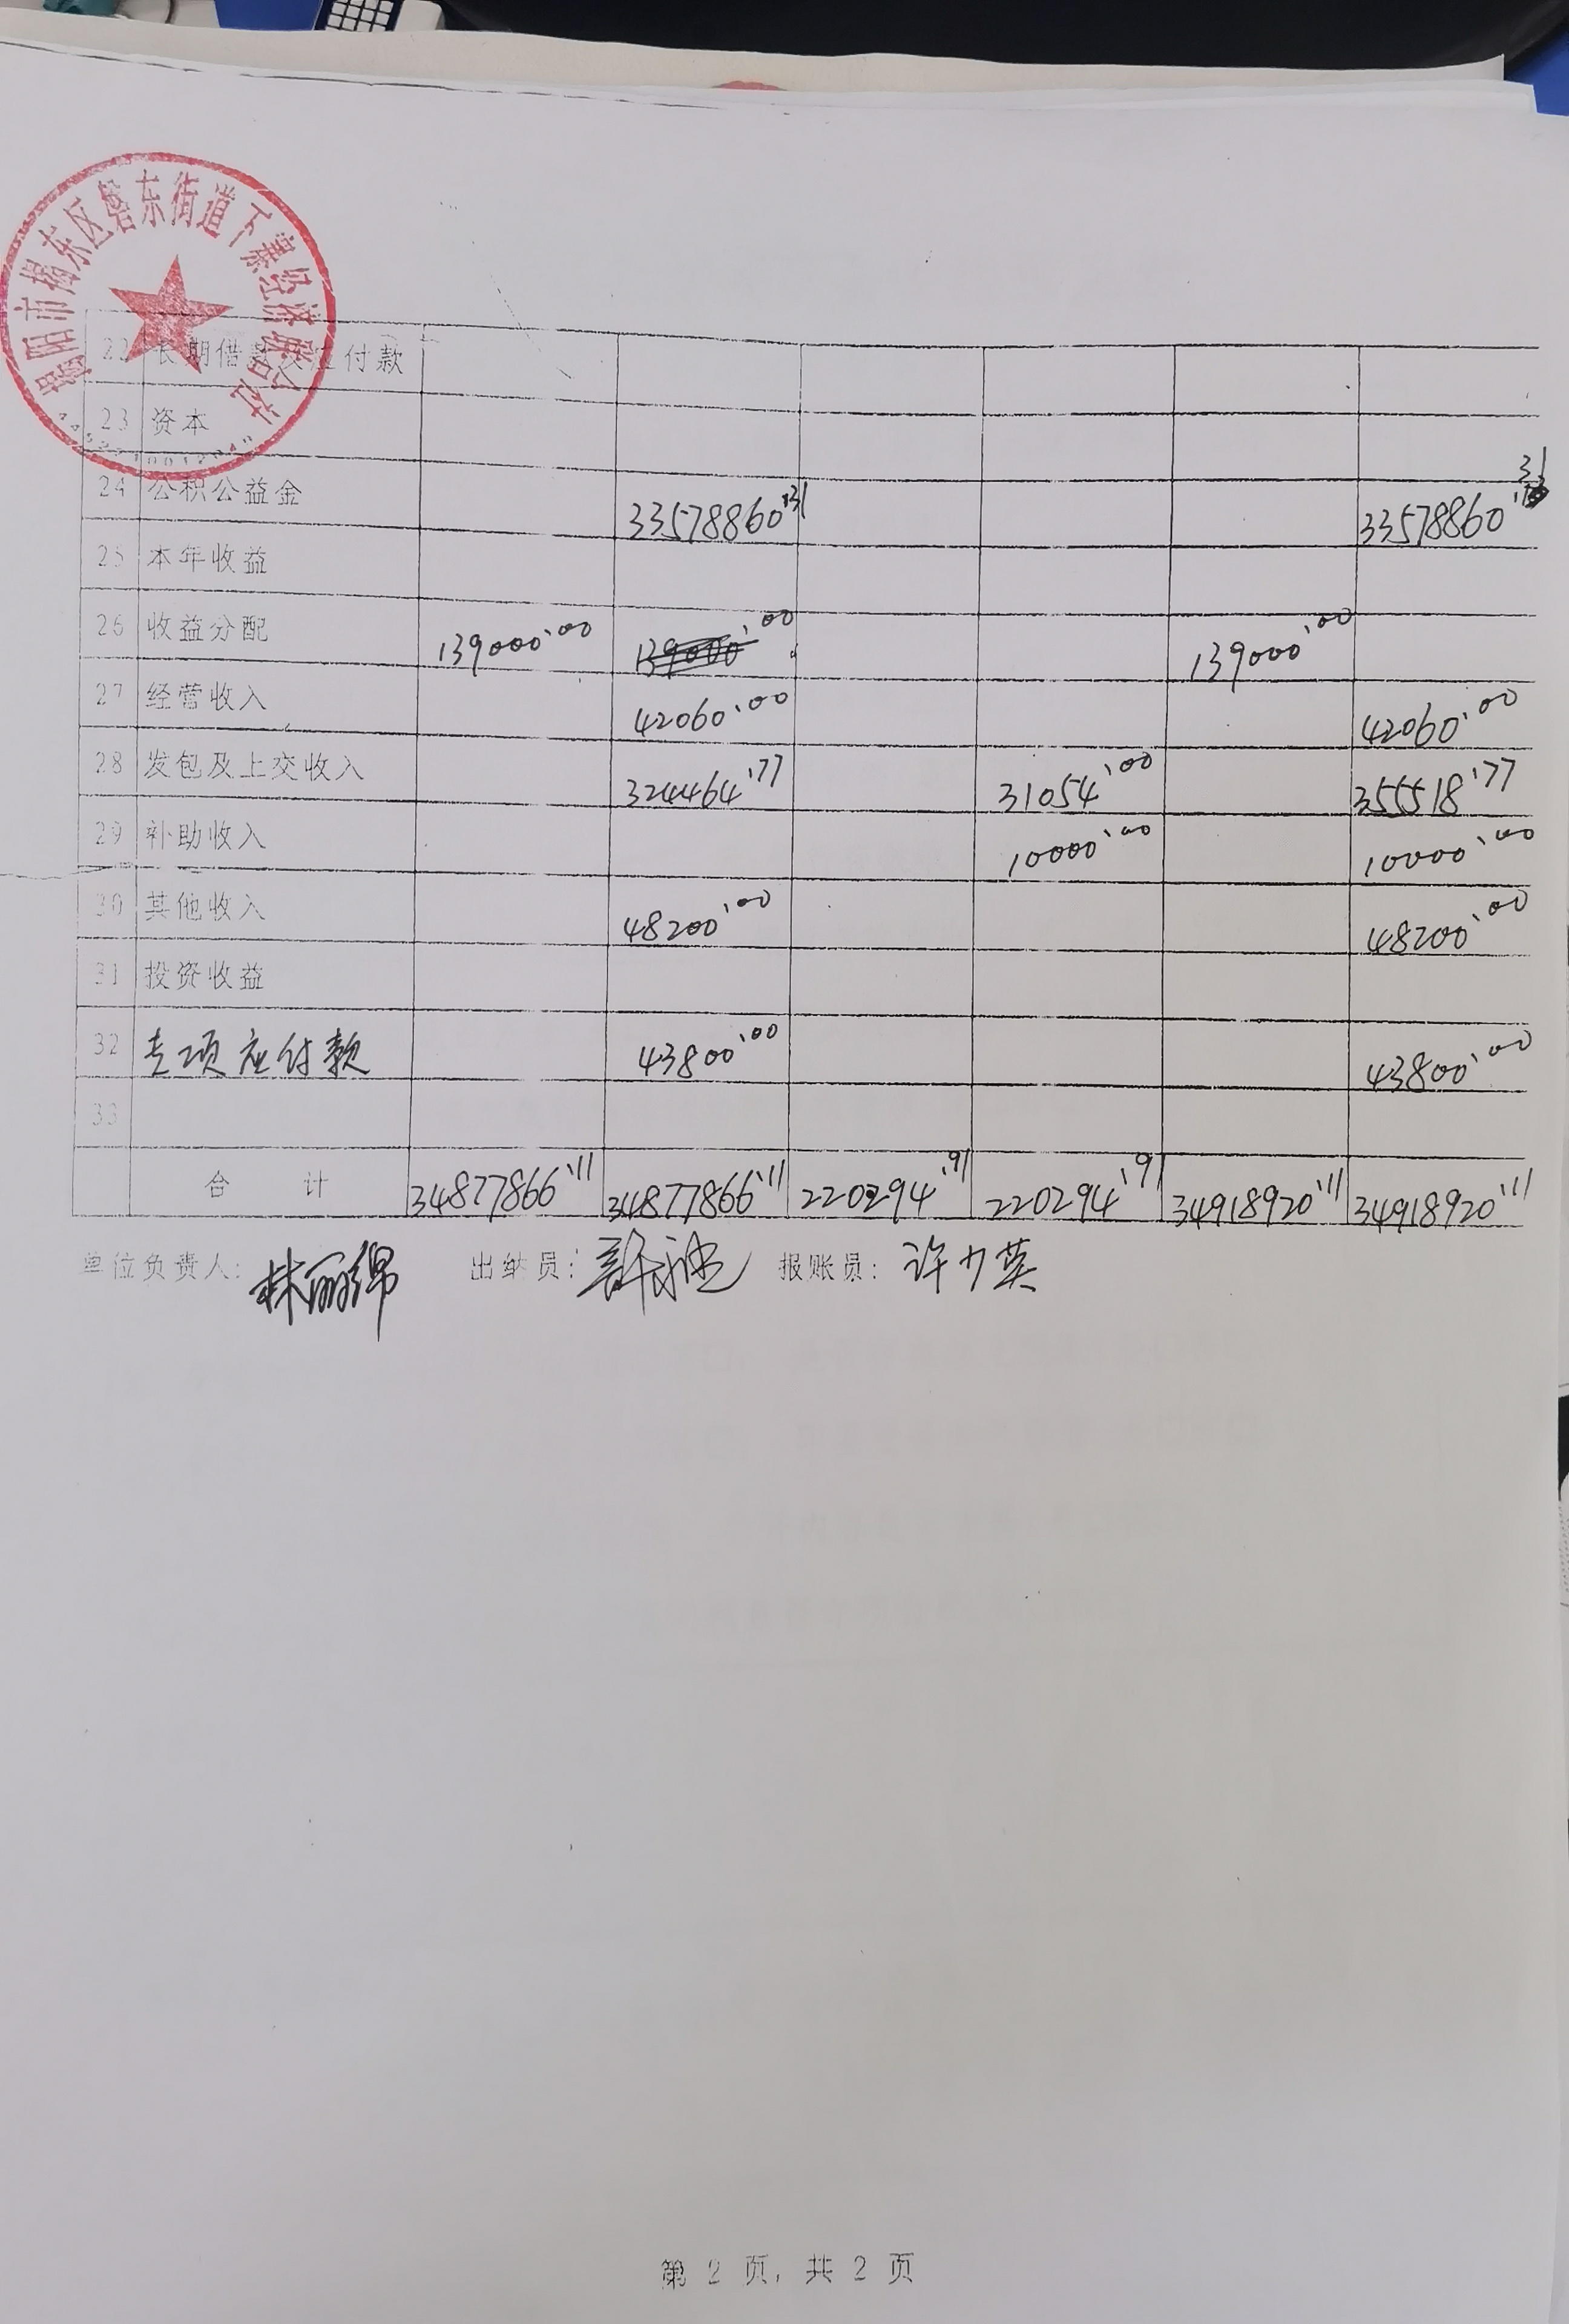 揭阳市揭东区磐东街道下寨经济联合社
22 长期借款及应付款
23 资本
24 公积公益金 33578860.31 33578860.31
25 本年收益
26 收益分配 139000.00 139000.00 139000.00
27 经营收入 42060.00 42060.00
28 发包及上交收入 324464.77 31054.00 355518.77
29 补助收入 10000.00 10000.00
30 其他收入 48200.00 48200.00
31 投资收益
32 专项应付款 43800.00 43800.00
33
合计 34877866.11 34877866.11 220294.91 220294.91 34918920.11 34918920.11
单位负责人: 林丽绵 出纳员: 报账员: 许少英
第 2 页, 共 2 页